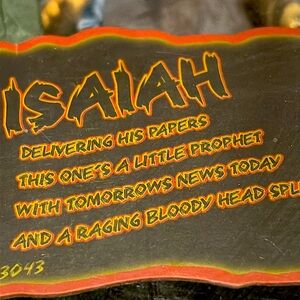 ISAIAH
DELIVERING HIS PAPERS
THIS ONE'S A LITTLE PROPHET
WITH TOMORROWS NEWS TODAY
AND A RAGING BLOODY HEAD SPL
3043